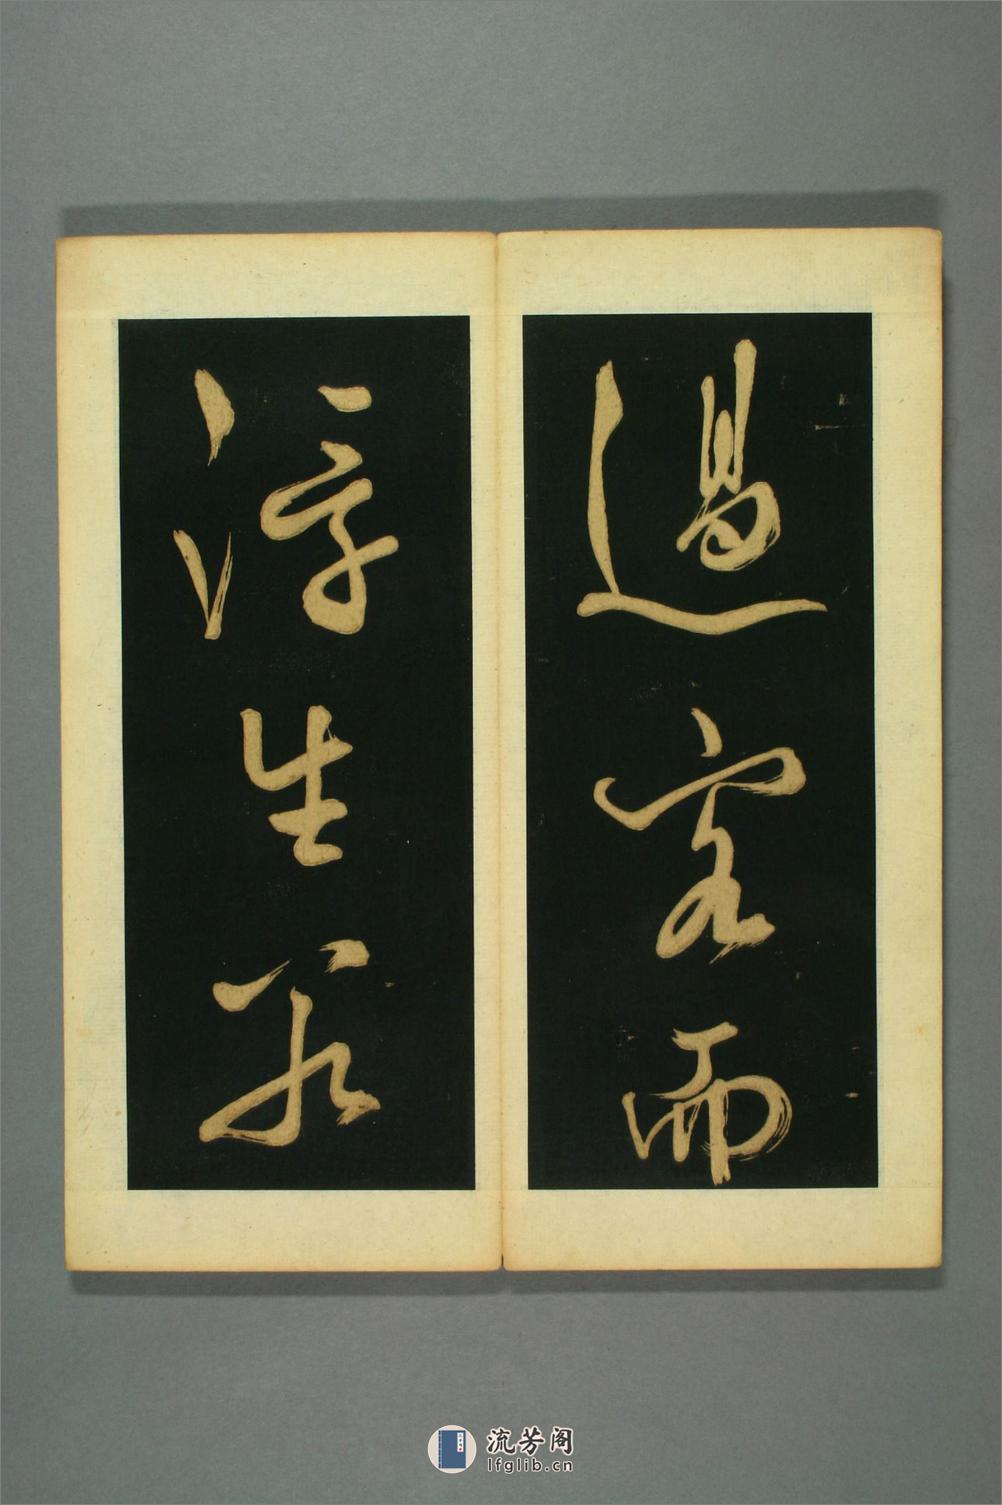 過客而
浮生若
流芳阁
lfglib.cn